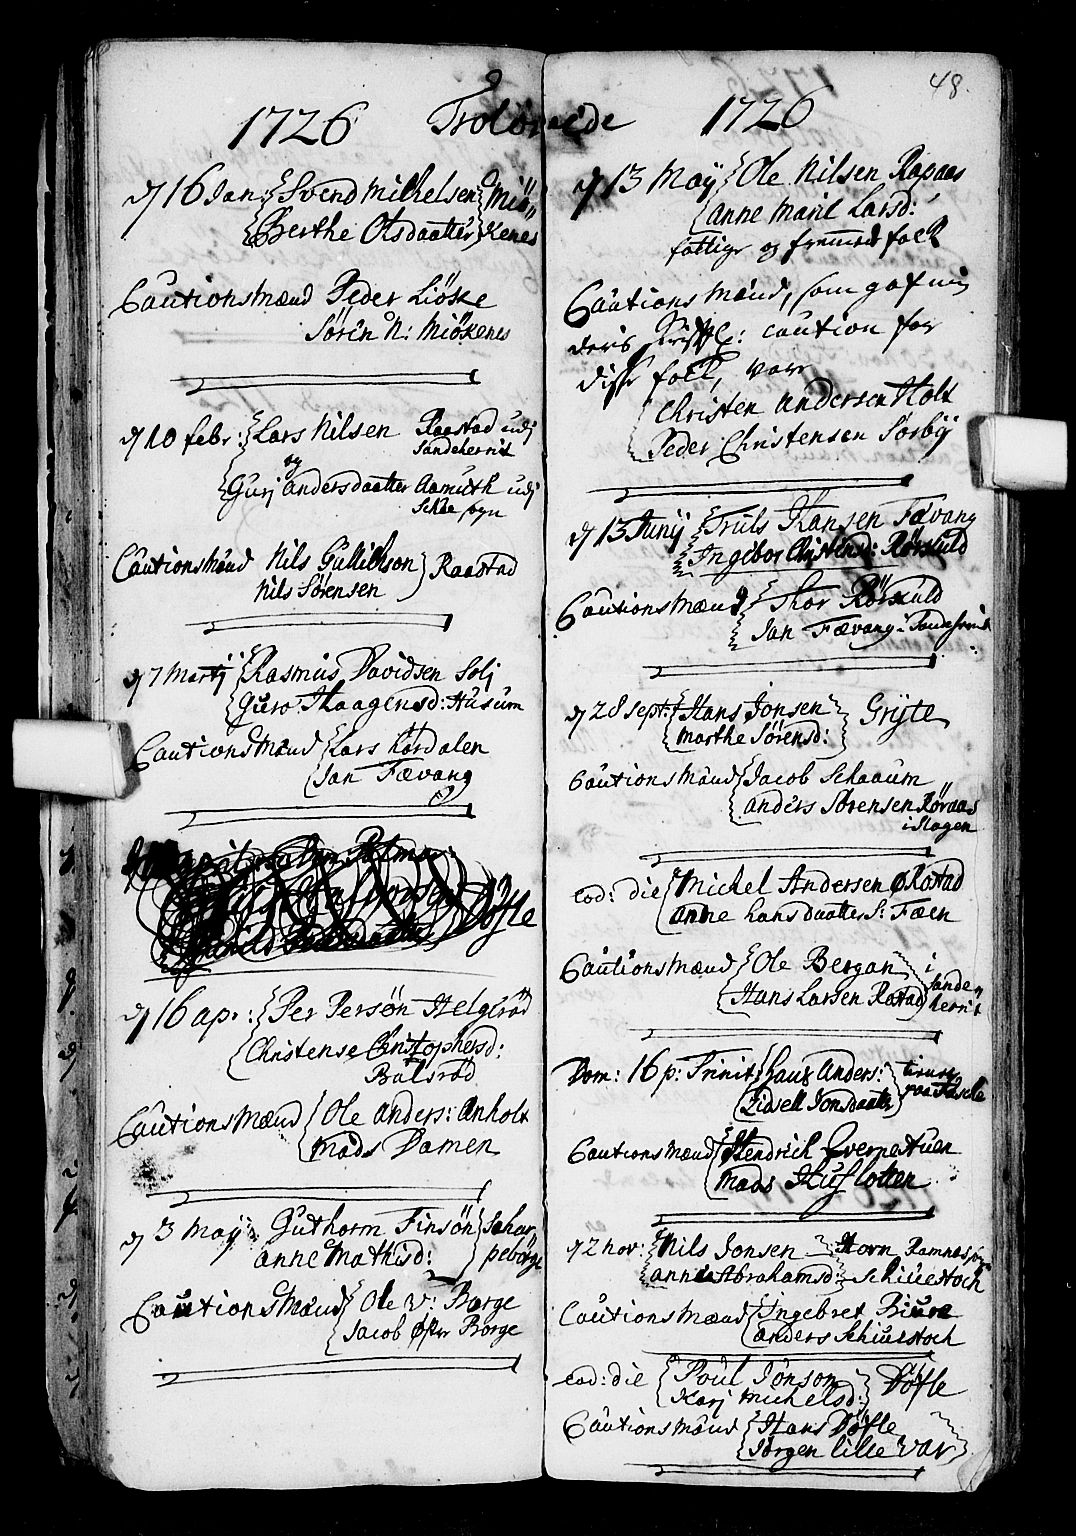 1726 Trolovede 1726
48.
d 16 Jan: Svend Michelsen Miö„
Berthe Olsdaatter kenes
Cautions Mænd Peder Liöske
Sören N: Miökenes
d 10 febr: Lars Nilsen Raastad udj
Sandeherrit
og
Gurj Andersdaatter Aamuth udj
sogn
Cautionsmænd Nils Gullichson Raastad
Nils Sörensen
d 7 Martij Rasmus Davidsen Solj
Guro Haagensd: Husum
Cautions Mænd Lars Hördalen
Jan Fævang
Döfle
d 16 ap: Per Persön Helgeröd
Christense Christophersd:
Bulsröd
Cautions Mænd Ole Anders: Anholt
Mads Damen
d 3 May Guthorm Finsön Schar„
Anne Mathisd: peborge
Cautions Mænd Ole V: Borge
Jacob Öster Borge
d 13 May Ole Nilsen Rapaas
Anne Maril Larsd:
fattige og fremmed folk
Cautions Mænd, som gaf
caution for
disse folk, vare
Christen Andersen Holt
Peder Christensen Sörby
d 13 Junij Truls Hansen Fævang
Ingebor Christensd: Rörkuld
Cautions Mænd Thor Rörkuld
Jan Fævang
d 28 Sept: Hans Jonsen Gryte
Marthe Sörensd:
Cautions Mænd Jacob Schaaum
Anders Sörensen Röraas
i Slagen
eod: die Michel Andersen Ø Rastad
Anne Larsdaatter S: Fæen
Cautions Mænd Ole Bergan i
Hans Larsen Rastad Sande„
herrit
Dom: 16 p: Trinit: Laus Anders:
Zidsell Jonsdaatter
Cautions Mænd Hendrich Evernestuen
Mads Huslotten
d 2 nov: Nils Jonsen Horn Ramnes sogn
Anne Abrahamsd: Schiuestoch
Cautions Mænd Ingebret Biure
Anders Schiuestoch
eod: die Poul Jönson Döfle
Karj Michelsd:
Cautions Mænd Hans Döfle
Jörgen lille Var